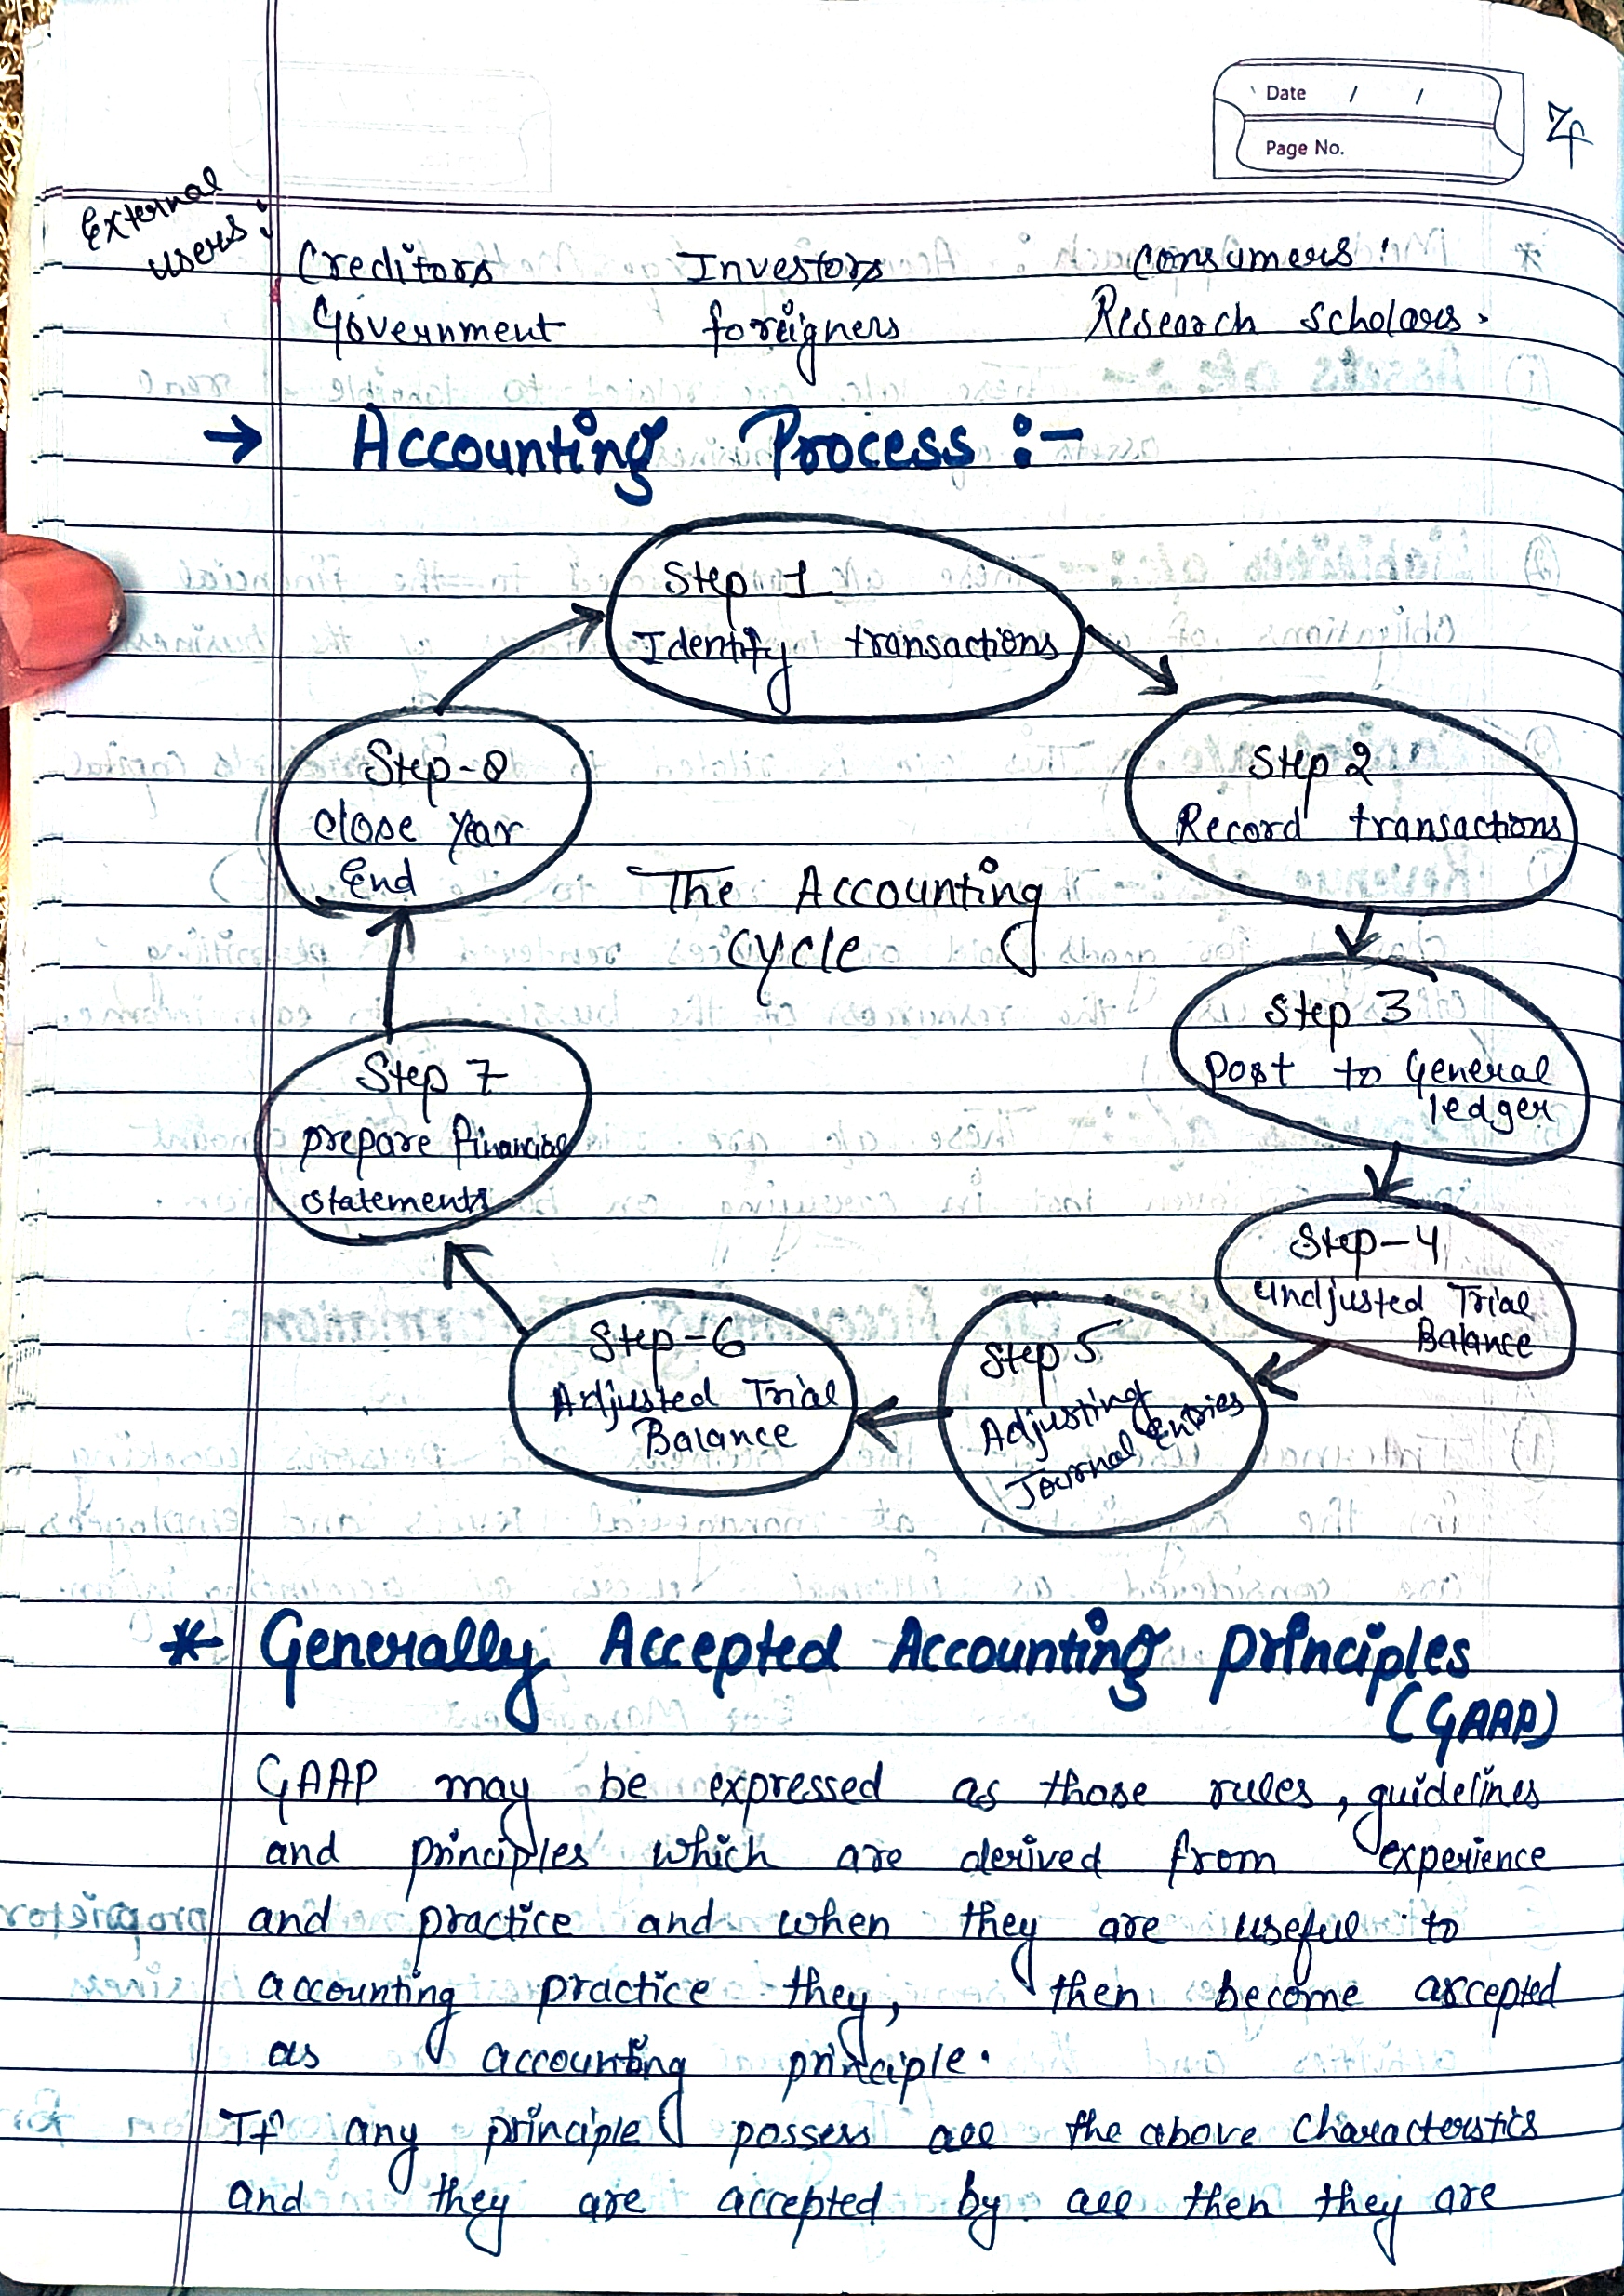 Date / /
Page No.
External
users:
Creditors Investors Consumers
Government foreigners Research scholars.
→ Accounting Process :-
Step 1
Identify transactions
Step 2
Record transactions
Step 3
Post to General
ledger
Step-4
Undjusted Trial
Balance
Step 5
Adjusting
Journal Entries
Step-6
Adjusted Trial
Balance
Step 7
prepare financial
statements
Step-8
close Year
End
The Accounting
cycle
* Generally Accepted Accounting principles
(GAAP)
GAAP may be expressed as those rules, guidelines
and principles which are derived from experience
and practice and when they are useful to
accounting practice they, then become accepted
as accounting principle.
If any principle possess all the above characterstics
and they are accepted by all then they are